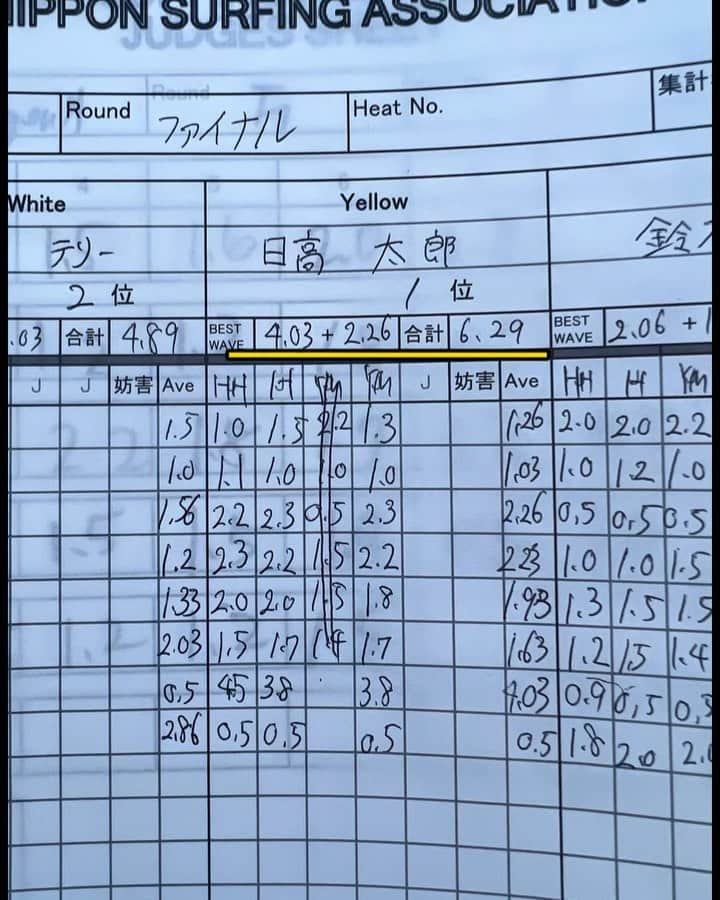 NIPPON SURFING ASSOCIATION
Round ファイナル Heat No. 集計
White Yellow
テリー 日高 太郎
2位 1位
.03 合計 4.89 BEST WAVE 4.03 + 2.26 合計 6.29 BEST WAVE 2.06 +
J J 妨害 Ave HH J 妨害 Ave HH YM
1.5 1.0 1.5 2.2 1.3 1.26 2.0 2.0 2.2
1.0 1.1 1.0 1.0 1.0 1.03 1.0 1.2 1.0
1.56 2.2 2.3 0.5 2.3 2.26 0.5 0.5 0.5
1.2 2.3 2.2 1.5 2.2 2.23 1.0 1.0 1.5
1.33 2.0 2.0 1.5 1.8 1.93 1.3 1.5 1.5
2.03 1.5 1.7 1.4 1.7 1.63 1.2 1.5 1.4
0.5 4.5 3.8 3.8 4.03 0.9 0.5
2.86 0.5 0.5 0.5 0.5 1.8 2.0